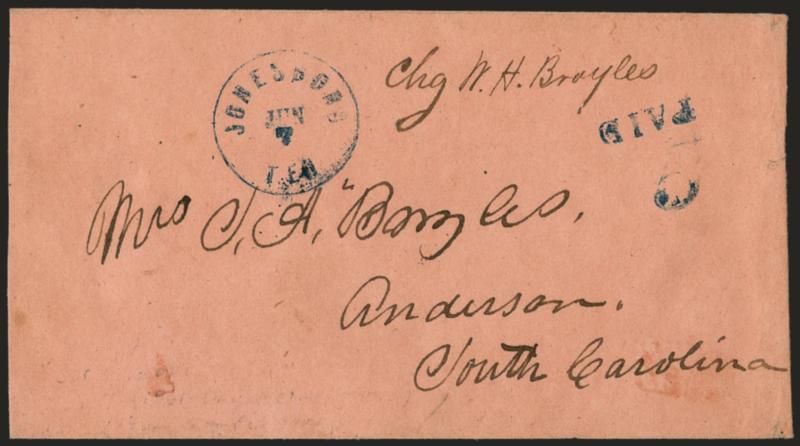 Chg W. H. Broyles
JONESBORO
JUN
7
TEN
PAID
Mrs J. A. Broyles,
Anderson.
South Carolina